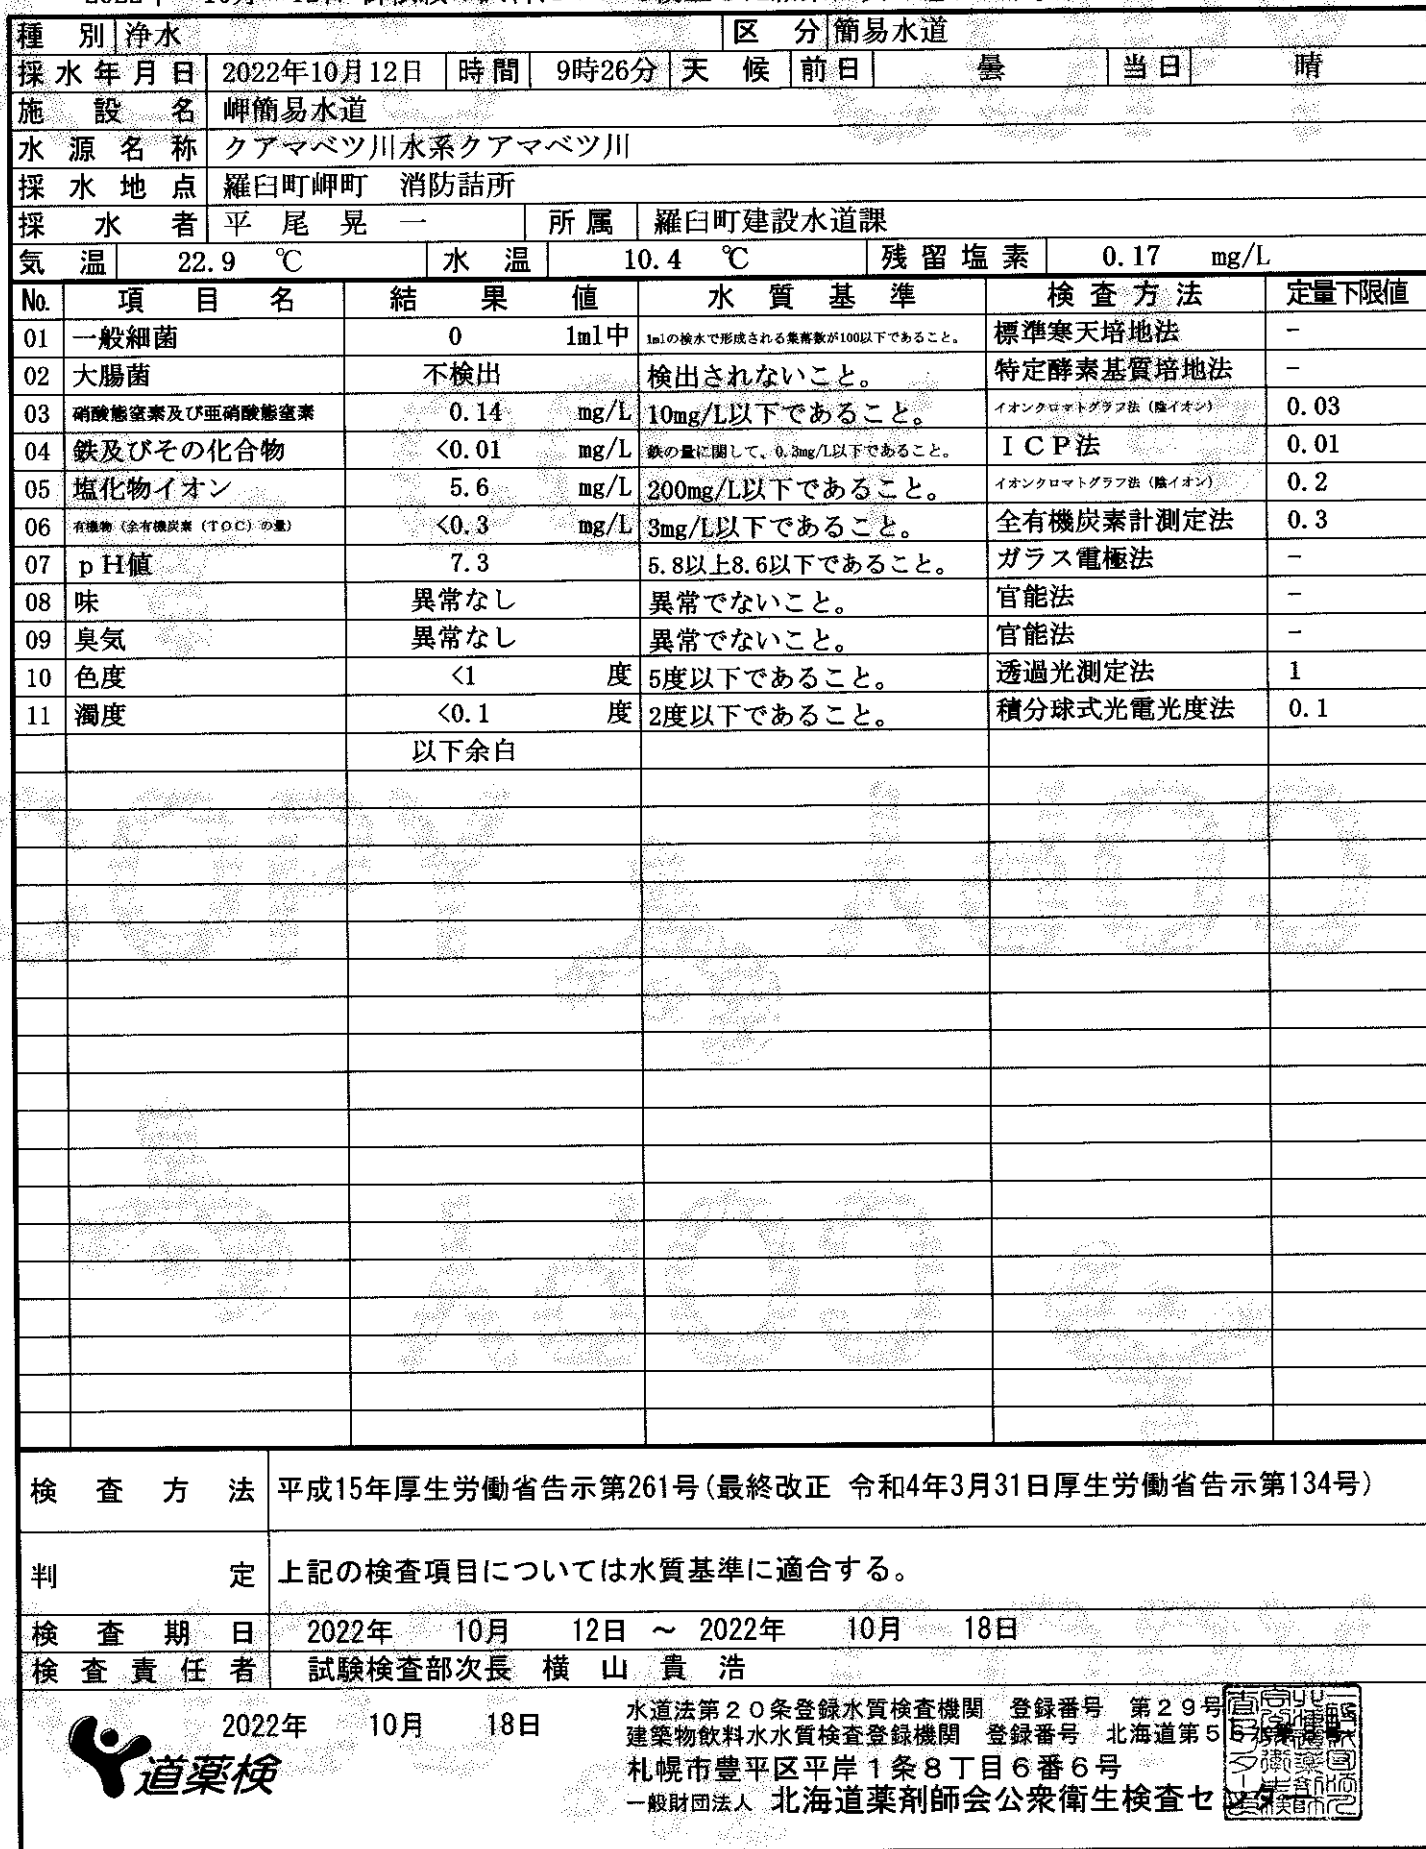 種別 浄水 区分 簡易水道
採水年月日 2022年10月12日 時間 9時26分 天候 前日 曇 当日 晴
施設名 岬簡易水道
水源名称 クアマベツ川水系クアマベツ川
採水地点 羅臼町岬町 消防詰所
採水者 平尾晃一 所属 羅臼町建設水道課
気温 22.9 ℃ 水温 10.4 ℃ 残留塩素 0.17 mg/L
No. 項目名 結果値 水質基準 検査方法 定量下限値
01 一般細菌 0 1ml中 1mlの検水で形成される集落数が100以下であること。 標準寒天培地法 -
02 大腸菌 不検出 検出されないこと。 特定酵素基質培地法 -
03 硝酸態窒素及び亜硝酸態窒素 0.14 mg/L 10mg/L以下であること。 イオンクロマトグラフ法（陰イオン） 0.03
04 鉄及びその化合物 <0.01 mg/L 鉄の量に関して、0.3mg/L以下であること。 ＩＣＰ法 0.01
05 塩化物イオン 5.6 mg/L 200mg/L以下であること。 イオンクロマトグラフ法（陰イオン） 0.2
06 有機物（全有機炭素（ＴＯＣ）の量） <0.3 mg/L 3mg/L以下であること。 全有機炭素計測定法 0.3
07 ｐＨ値 7.3 5.8以上8.6以下であること。 ガラス電極法 -
08 味 異常なし 異常でないこと。 官能法 -
09 臭気 異常なし 異常でないこと。 官能法 -
10 色度 <1 度 5度以下であること。 透過光測定法 1
11 濁度 <0.1 度 2度以下であること。 積分球式光電光度法 0.1
以下余白
検査方法 平成15年厚生労働省告示第261号(最終改正 令和4年3月31日厚生労働省告示第134号)
判定 上記の検査項目については水質基準に適合する。
検査期日 2022年 10月 12日 ～ 2022年 10月 18日
検査責任者 試験検査部次長 横山貴浩
2022年 10月 18日
道薬検
水道法第２０条登録水質検査機関 登録番号 第２９号
建築物飲料水水質検査登録機関 登録番号 北海道第５
札幌市豊平区平岸１条８丁目６番６号
一般財団法人 北海道薬剤師会公衆衛生検査センター